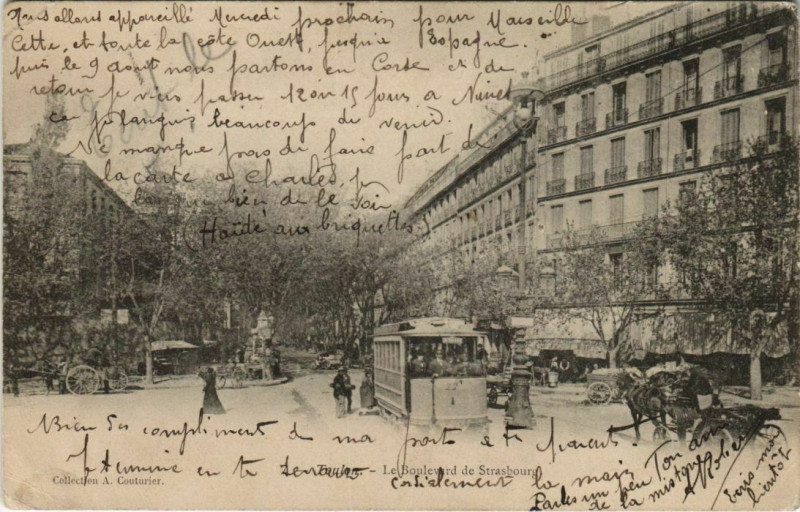 Nous allons appareillé Mercredi prochain pour Marseille
Cette, et toute la côte Ouest, jusqu'a Espagne.
puis le 9 août nous partons en Corse et de
retour je vais passer 12 ou 15 jours a
ca beaucoup de venir.
Ne manque pas de faire part de
la carte a Charles,
bien de le
(Haïdé aux briquettes)
Bien des compliment de ma part a tes parents.
termine en te serrant cordialement la main
Ton ami
Robert
Parles un peu
de la
Ecris moi
bientôt
Toulon. - Le Boulevard de Strasbourg
Collection A. Couturier.